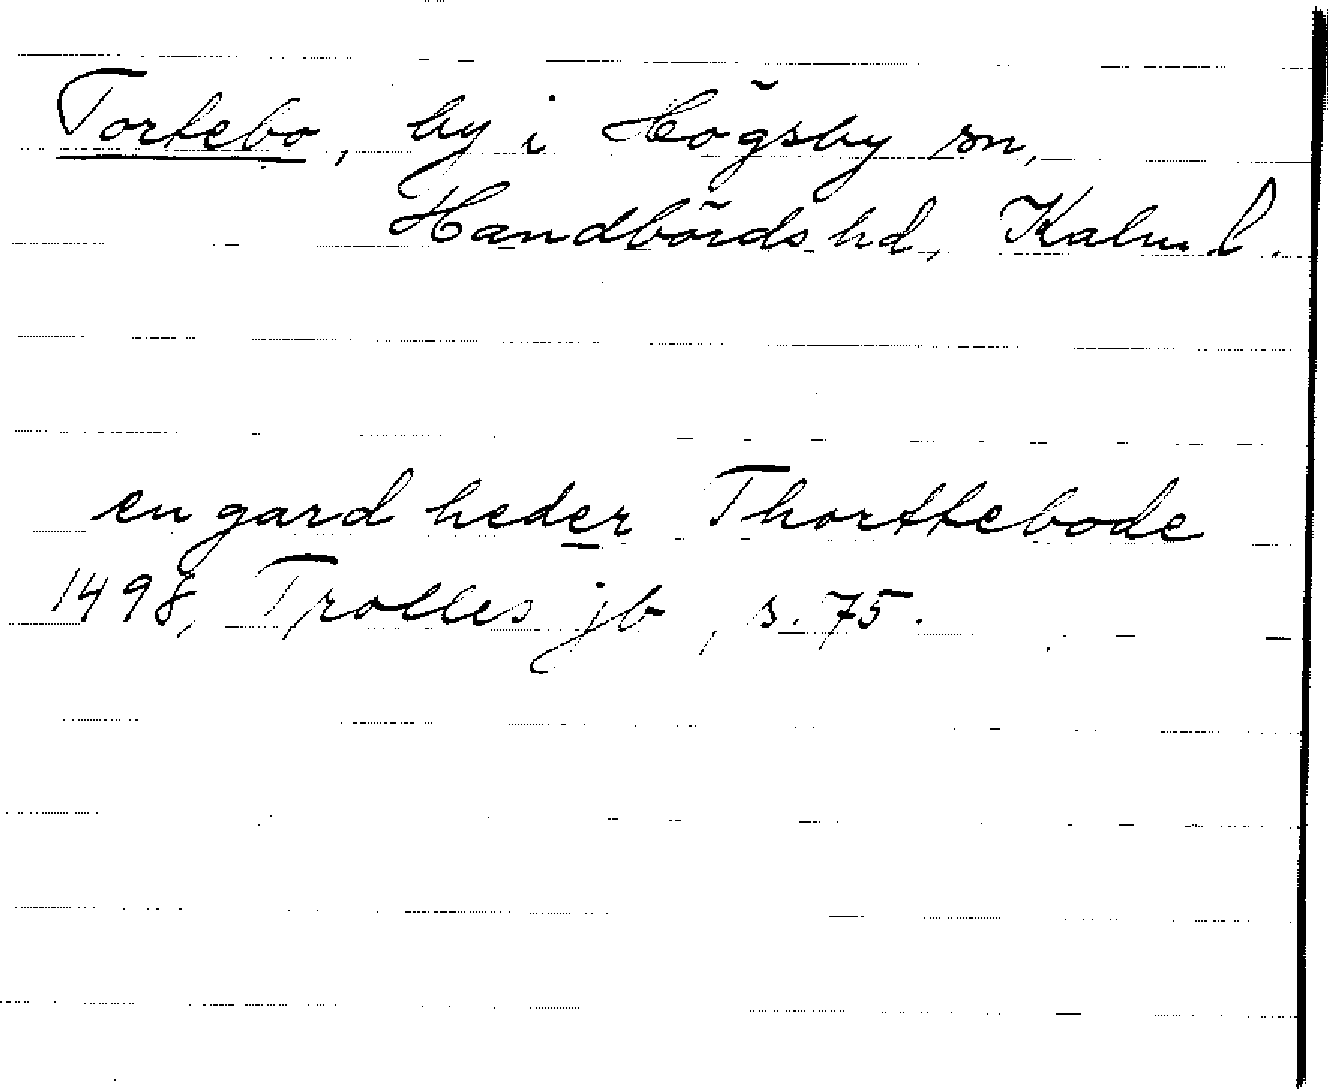 Tortebo, by i Högsby sn,
Handbörds hd, Kalm. l.
en gard heder Thorttebode
1498, Trolles jb, s. 75.